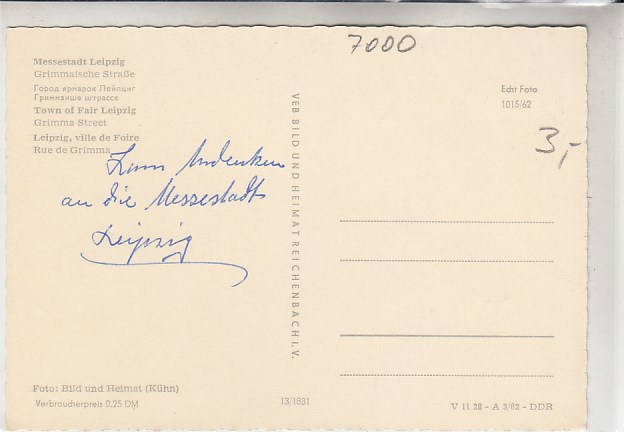 7000
Messestadt Leipzig
Grimmaische Straße
Город ярмарок Лейпциг
Гриммаише штрассе
Town of Fair Leipzig
Grimma Street
Leipzig, ville de Foire
Rue de Grimma
Zum Andenken
an die Messestadt
Leipzig
Foto: Bild und Heimat (Kühn)
Verbraucherpreis 0,25 DM
VEB BILD UND HEIMAT REICHENBACH I. V.
13/1831
Echt Foto
1015/62
3,-
V 11 28 - A 3/62 - DDR